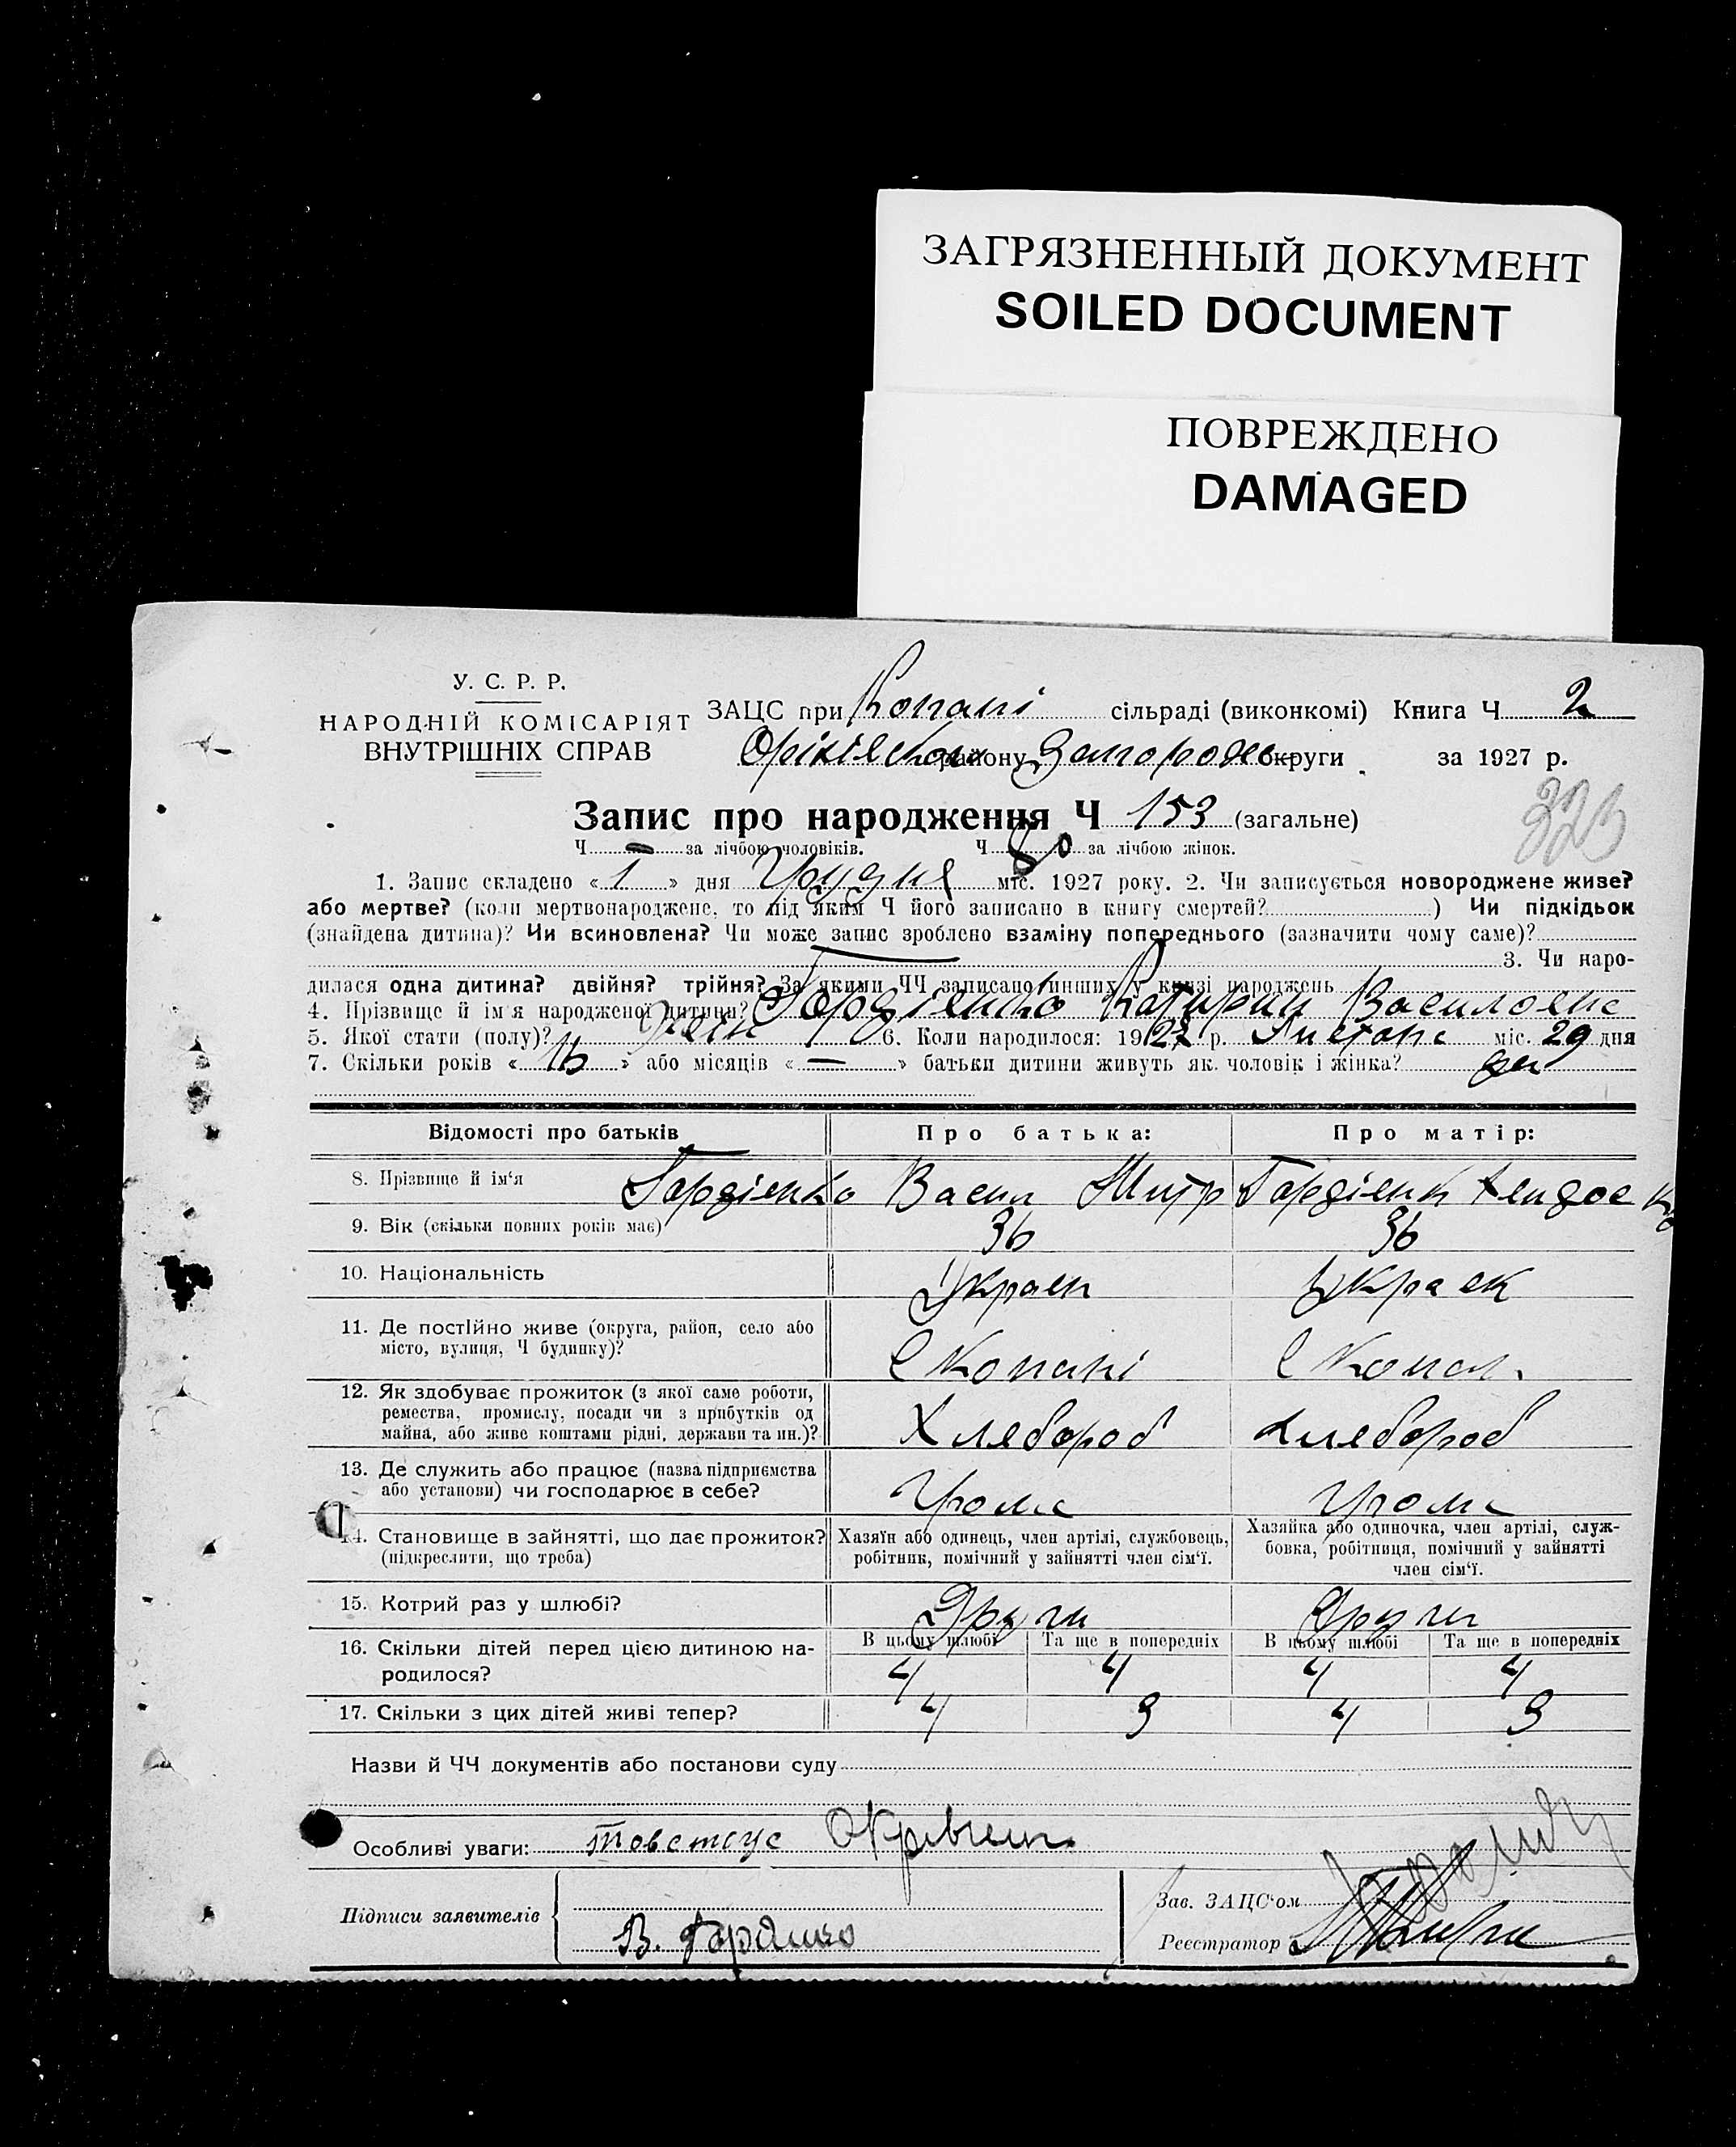 ЗАГРЯЗНЕННЫЙ ДОКУМЕНТ
SOILED DOCUMENT
ПОВРЕЖДЕНО
DAMAGED
У. С. Р. Р.
НАРОДНІЙ КОМІСАРІЯТ
ВНУТРІШНІХ СПРАВ
ЗАЦС при Копані сільраді (виконкомі) Книга Ч 2
району Запорож округи за 1927 р.
323
Запис про народження Ч 153 (загальне)
Ч — за лічбою чоловіків. Ч 80 за лічбою жінок.
1. Запис складено « 1 » дня Грудня міс. 1927 року. 2. Чи записується новороджене живе?
або мертве? (коли мертвонароджене, то під яким Ч його записано в книгу смертей? ) Чи підкідьок
(знайдена дитина)? Чи всиновлена? Чи може запис зроблено взаміну попереднього (зазначити чому саме)?
3. Чи наро-
дилася одна дитина? двійня? трійня? За якими ЧЧ записано инших у книзі народжень
4. Прізвище й ім'я народженої дитини? Гордіенко Катирин Василовне
5. Якої стати (полу)? жен 6. Коли народилося: 1927 р. Листопс міс. 29 дня
7. Скільки років « 16 » або місяців « — » батьки дитини живуть як чоловік і жінка? да
Відомості про батьків Про батька: Про матір:
8. Прізвище й ім'я Гордіенко Васил Митр Гордіенк
9. Вік (скільки повних років має) 36 36
10. Національність Украен Украек
11. Де постійно живе (округа, район, село або
місто, вулиця, Ч будинку)? С Копані С Копан.
12. Як здобуває прожиток (з якої саме роботи,
ремества, промислу, посади чи з прибутків од
майна, або живе коштами рідні, держави та ин.)? Хлебороб Хлебороб
13. Де служить або працює (назва підприємства
або установи) чи господарює в себе?
14. Становище в зайнятті, що дає прожиток?
(підкреслити, що треба)
Хазяїн або одинець, член артілі, службовець,
робітник, помічний у зайнятті член сім'ї.
Хазяйка або одиночка, член артілі, служ-
бовка, робітниця, помічний у зайнятті
член сім'ї.
15. Котрий раз у шлюбі? Други Други
16. Скільки дітей перед цією дитиною на-
родилося?
В цьому шлюбі Та ще в попередніх В цьому шлюбі Та ще в попередніх
4 4 4 4
17. Скільки з цих дітей живі тепер? 4 3 4 3
Назви й ЧЧ документів або постанови суду
Особливі уваги:
Підписи заявителів
Зав. ЗАЦС'ом
Реєстратор